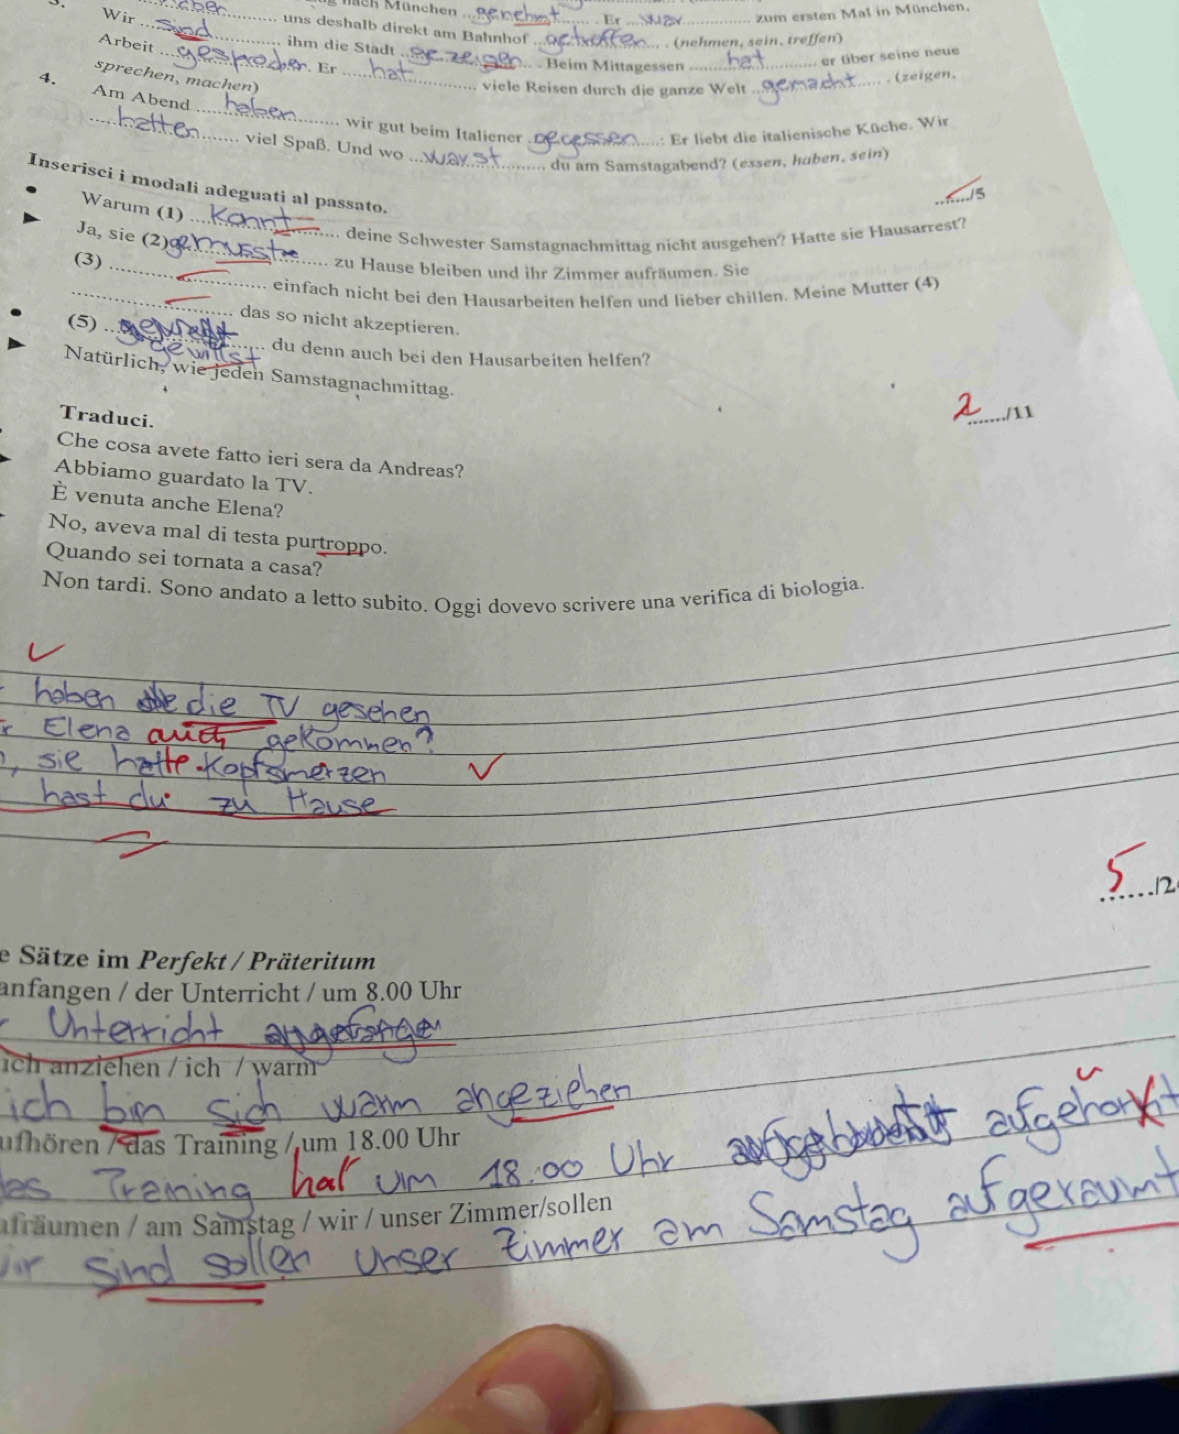 3. nach München genehmt. Er war zum ersten Mal in München.
Wir haben uns deshalb direkt am Bahnhof getroffen. (nehmen, sein, treffen)
Wir sind ihm die Stadt gezeigen. Beim Mittagessen hat er über seine neue
Arbeit gesprochen. Er hat viele Reisen durch die ganze Welt gemacht. (zeigen,
sprechen, machen)
4. Am Abend haben wir gut beim Italiener gegessen: Er liebt die italienische Küche. Wir
hatten viel Spaß. Und wo warst du am Samstagabend? (essen, haben, sein)
/5
Inserisci i modali adeguati al passato.
Warum (1) Kannt deine Schwester Samstagnachmittag nicht ausgehen? Hatte sie Hausarrest?
Ja, sie (2) gemusste zu Hause bleiben und ihr Zimmer aufräumen. Sie
(3) einfach nicht bei den Hausarbeiten helfen und lieber chillen. Meine Mutter (4)
das so nicht akzeptieren.
(5) gewillst du denn auch bei den Hausarbeiten helfen?
Natürlich, wie jeden Samstagnachmittag.
2 /11
Traduci.
Che cosa avete fatto ieri sera da Andreas?
Abbiamo guardato la TV.
È venuta anche Elena?
No, aveva mal di testa purtroppo.
Quando sei tornata a casa?
Non tardi. Sono andato a letto subito. Oggi dovevo scrivere una verifica di biologia.
haben die TV gesehen
Elena auch gekommen?
, sie hatte Kopfsmerzen
hast du zu Hause
5 /2
e Sätze im Perfekt / Präteritum
anfangen / der Unterricht / um 8.00 Uhr
Unterricht angefangen
ich anziehen / ich / warm
ich bin sich warm angeziehen
ufhören / das Training / um 18.00 Uhr
das Training hat um 18:00 Uhr aufgehört
ufräumen / am Samstag / wir / unser Zimmer/sollen
wir sind sollen unser Zimmer am Samstag aufgeraumt